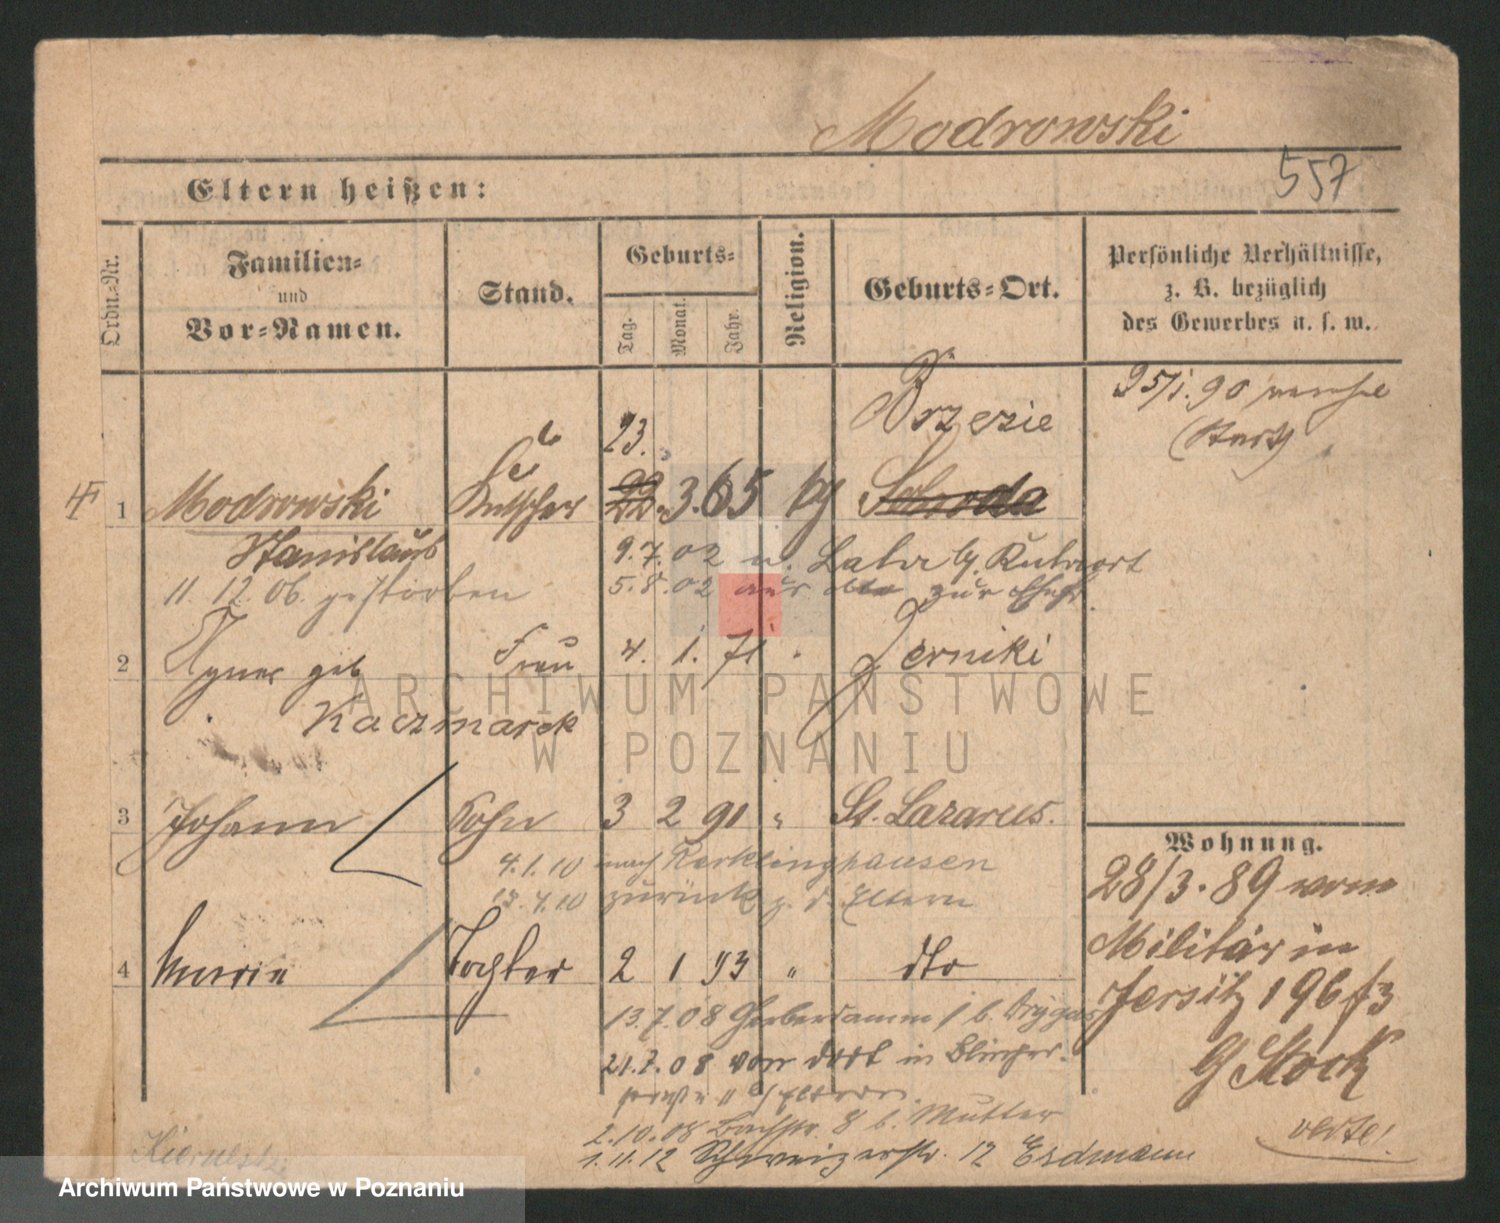 Modrowski
557
Eltern heißen:
Ordn.-Nr.
Familien-
und
Vor-Namen.
Stand.
Geburts-
Tag.
Monat.
Jahr.
Religion.
Geburts-Ort.
Persönliche Verhältnisse,
z. B. bezüglich
des Gewerbes u. s. w.
25/1. 90
23.
Brzezie
1 Modrowski Kutscher 22. 3. 65 Soboda
Stanislaus
9. 7. 02 n. b/ Ruhrort
11. 12. 06. gestorben
5. 8. 02 aus dto zur
2 Agnes geb Frau 4. 1. 71 " Zerniki
Kaczmarek
3 Johann Sohn 3 2 91 " St. Lazarus.
4. 1. 10 nach Recklinghausen
13. 7. 10 zurück z. d. Eltern
4 Marie Tochter 2 1 93 " dto
13. 7. 08 Gerberdamm 1 b.
21. 7. 08 von dort in Blücher-
b/ Eltern
2. 10. 08 Bachstr. 8 b. Mutter
1. 11. 12 Schweizerstr. 12 Erdmann
Wohnung.
28/3. 89 vom
Militär in
Jersitz 196 f3
G Stock
verte!
ARCHIWUM PAŃSTWOWE
W POZNANIU
Archiwum Państwowe w Poznaniu